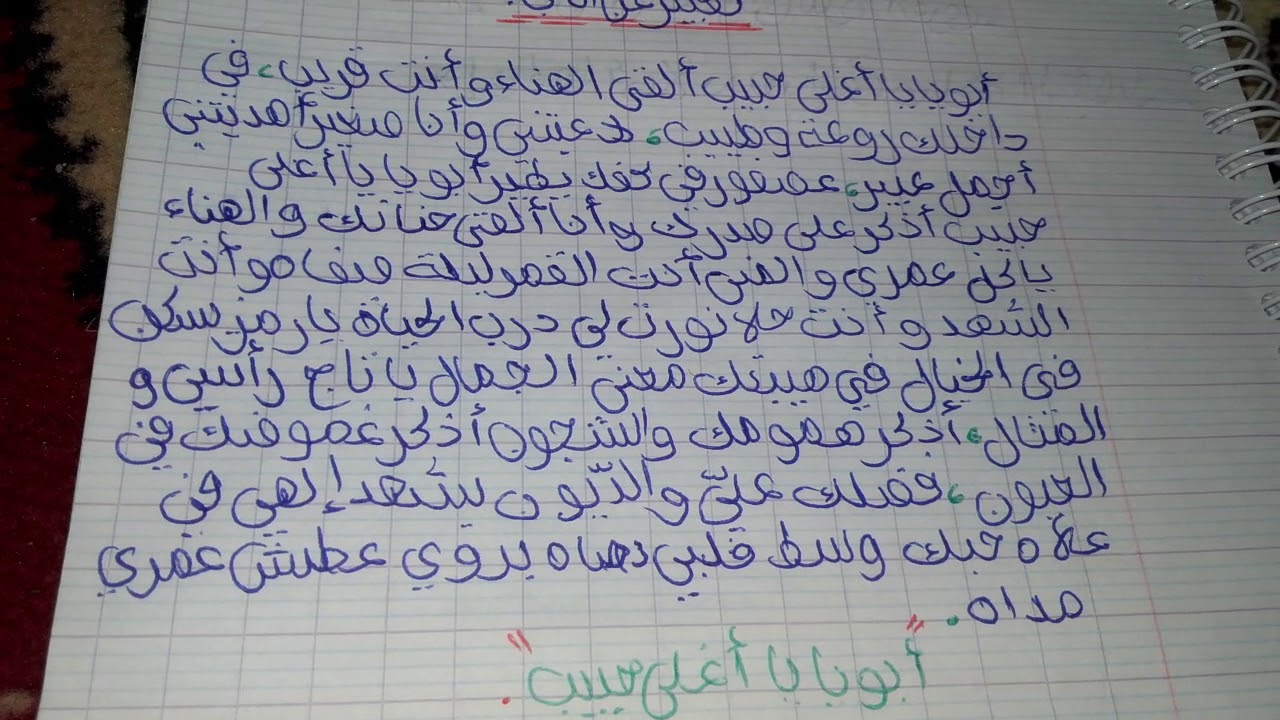 تعبير عن الأب.
أبويا يا أغلى حبيب ألقى الهناء وأنت قريب، في
داخلك روعة وطيب، دعتني وأنا صغير أهديتني
أجمل عبير، عصفور في كفك يطير أبويا يا أغلى
حبيب أذكر على صدرك وأنا ألقى حنانك والهناء
يا كل عمري والمنى أنت القمر ليلة صفاه وأنت
الشهد وأنت حلاه نورت لي درب الحياة يا رمز يسكن
في الخيال في هيبتك معنى الجمال يا تاج رأسي و
المثال، أذكر همومك والشجون أذكر غموضك في
العيون، فضلك عليّ والدّيون يشهد إلهي في
علاه حبك وسط قلبي دماه يروي عطش عمري
مداه.
"أبويا يا أغلى حبيب".